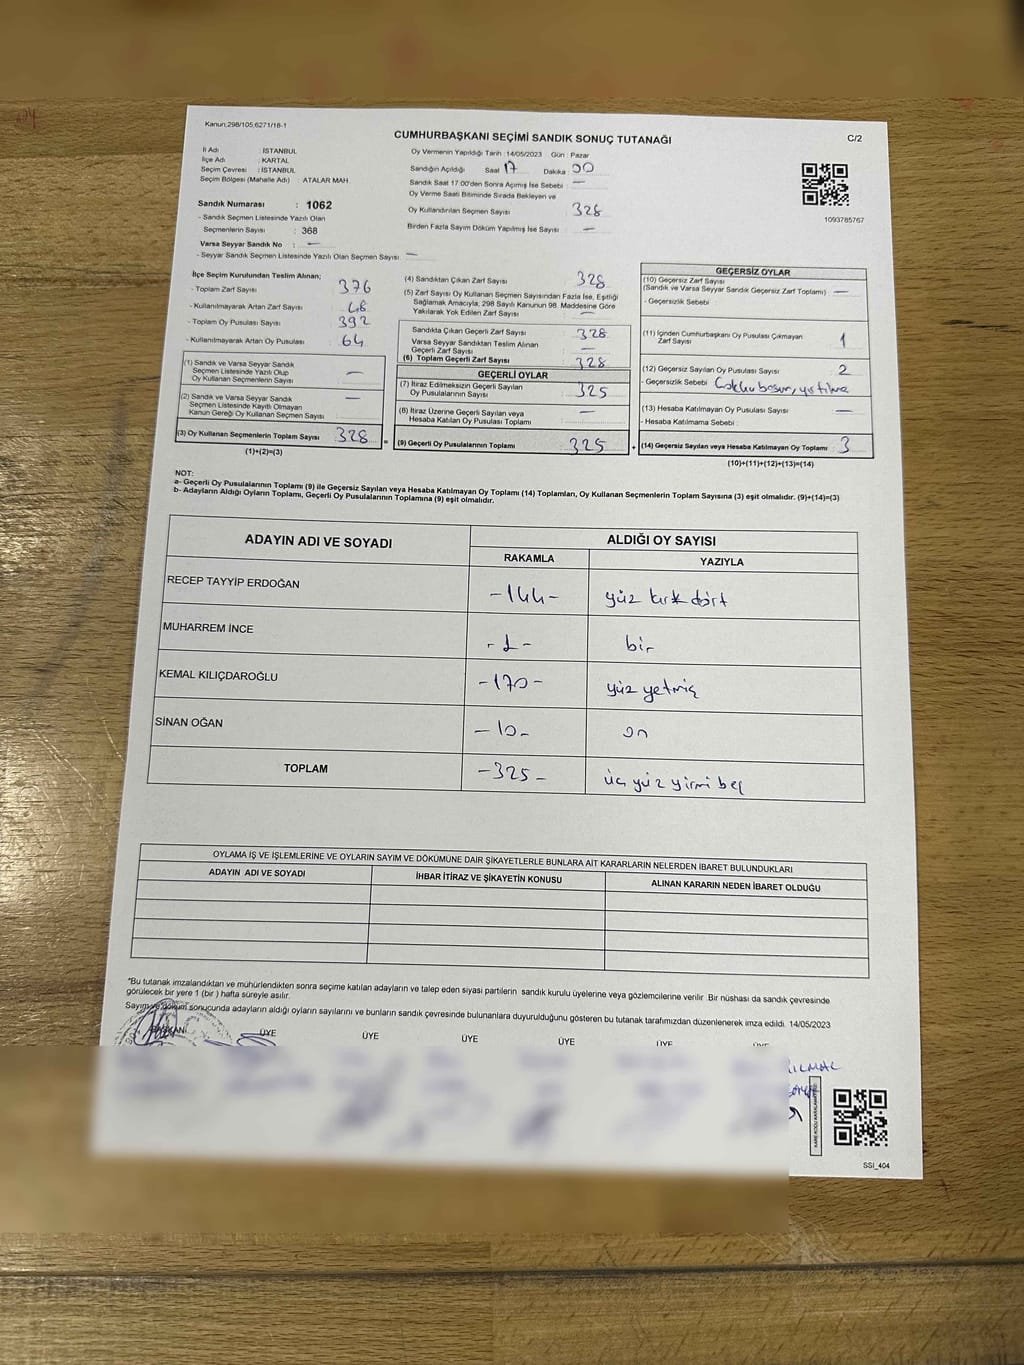 Kanun;298/105,6271/18-1
CUMHURBAŞKANI SEÇİMİ SANDIK SONUÇ TUTANAĞI
C/2
İl Adı : İSTANBUL
İlçe Adı : KARTAL
Seçim Çevresi : İSTANBUL
Seçim Bölgesi (Mahalle Adı) : ATALAR MAH.
Sandık Numarası : 1062
- Sandık Seçmen Listesinde Yazılı Olan
Seçmenlerin Sayısı : 368
Varsa Seyyar Sandık No : —
- Seyyar Sandık Seçmen Listesinde Yazılı Olan Seçmen Sayısı: —
Oy Vermenin Yapıldığı Tarih :14/05/2023 Gün : Pazar
Sandığın Açıldığı Saat 17 Dakika 00
Sandık Saat 17.00'den Sonra Açımış İse Sebebi : —
Oy Verme Saati Bitiminde Sırada Bekleyen ve
Oy Kullandırılan Seçmen Sayısı 328
Birden Fazla Sayım Döküm Yapılmış İse Sayısı : —
1093785767
İlçe Seçim Kurulundan Teslim Alınan;
- Toplam Zarf Sayısı : 376
- Kullanılmayarak Artan Zarf Sayısı : 48
- Toplam Oy Pusulası Sayısı : 392
- Kullanılmayarak Artan Oy Pusulası : 64
(1) Sandık ve Varsa Seyyar Sandık
Seçmen Listesinde Yazılı Olup
Oy Kullanan Seçmenlerin Sayısı : —
(2) Sandık ve Varsa Seyyar Sandık
Seçmen Listesinde Kayıtlı Olmayan
Kanun Gereği Oy Kullanan Seçmen Sayısı : —
(3) Oy Kullanan Seçmenlerin Toplam Sayısı : 328
(1)+(2)=(3)
=
(4) Sandıktan Çıkan Zarf Sayısı : 328
(5) Zarf Sayısı Oy Kullanan Seçmen Sayısından Fazla İse, Eşitliği
Sağlamak Amacıyla, 298 Sayılı Kanunun 98. Maddesine Göre
Yakılarak Yok Edilen Zarf Sayısı : —
Sandıkta Çıkan Geçerli Zarf Sayısı : 328
Varsa Seyyar Sandıktan Teslim Alınan
Geçerli Zarf Sayısı : —
(6) Toplam Geçerli Zarf Sayısı : 328
GEÇERLİ OYLAR
(7) İtiraz Edilmeksizin Geçerli Sayılan
Oy Pusulalarının Sayısı : 325
(8) İtiraz Üzerine Geçerli Sayılan veya
Hesaba Katılan Oy Pusulası Toplamı : —
(9) Geçerli Oy Pusulalarının Toplamı : 325
+
GEÇERSİZ OYLAR
(10) Geçersiz Zarf Sayısı
(Sandık ve Varsa Seyyar Sandık Geçersiz Zarf Toplamı) : —
- Geçersizlik Sebebi :
(11) İçinden Cumhurbaşkanı Oy Pusulası Çıkmayan
Zarf Sayısı : 1
(12) Geçersiz Sayılan Oy Pusulası Sayısı : 2
- Geçersizlik Sebebi : yırtılma
(13) Hesaba Katılmayan Oy Pusulası Sayısı : —
- Hesaba Katılmama Sebebi :
(14) Geçersiz Sayılan veya Hesaba Katılmayan Oy Toplamı : 3
(10)+(11)+(12)+(13)=(14)
NOT:
a- Geçerli Oy Pusulalarının Toplamı (9) ile Geçersiz Sayılan veya Hesaba Katılmayan Oy Toplamı (14) Toplamları, Oy Kullanan Seçmenlerin Toplam Sayısına (3) eşit olmalıdır. (9)+(14)=(3)
b- Adayların Aldığı Oyların Toplamı, Geçerli Oy Pusulalarının Toplamına (9) eşit olmalıdır.
ADAYIN ADI VE SOYADI
ALDIĞI OY SAYISI
RAKAMLA YAZIYLA
RECEP TAYYİP ERDOĞAN -144- yüz kırk dört
MUHARREM İNCE -1- bir
KEMAL KILIÇDAROĞLU -170- yüz yetmiş
SİNAN OĞAN -10- on
TOPLAM -325- üç yüz yirmi beş
OYLAMA İŞ VE İŞLEMLERİNE VE OYLARIN SAYIM VE DÖKÜMÜNE DAİR ŞİKAYETLERLE BUNLARA AİT KARARLARIN NELERDEN İBARET BULUNDUKLARI
ADAYIN ADI VE SOYADI İHBAR İTİRAZ VE ŞİKAYETİN KONUSU ALINAN KARARIN NEDEN İBARET OLDUĞU
*Bu tutanak imzalandıktan ve mühürlendikten sonra seçime katılan adayların ve talep eden siyasi partilerin sandık kurulu üyelerine veya gözlemcilerine verilir .Bir nüshası da sandık çevresinde
görülecek bir yere 1 (bir ) hafta süreyle asılır.
Sayım ve döküm sonucunda adayların aldığı oyların sayılarını ve bunların sandık çevresinde bulunanlara duyurulduğunu gösteren bu tutanak tarafımızdan düzenlenerek imza edildi. 14/05/2023
BAŞKAN ÜYE ÜYE ÜYE ÜYE ÜYE ÜYE
SSI_404